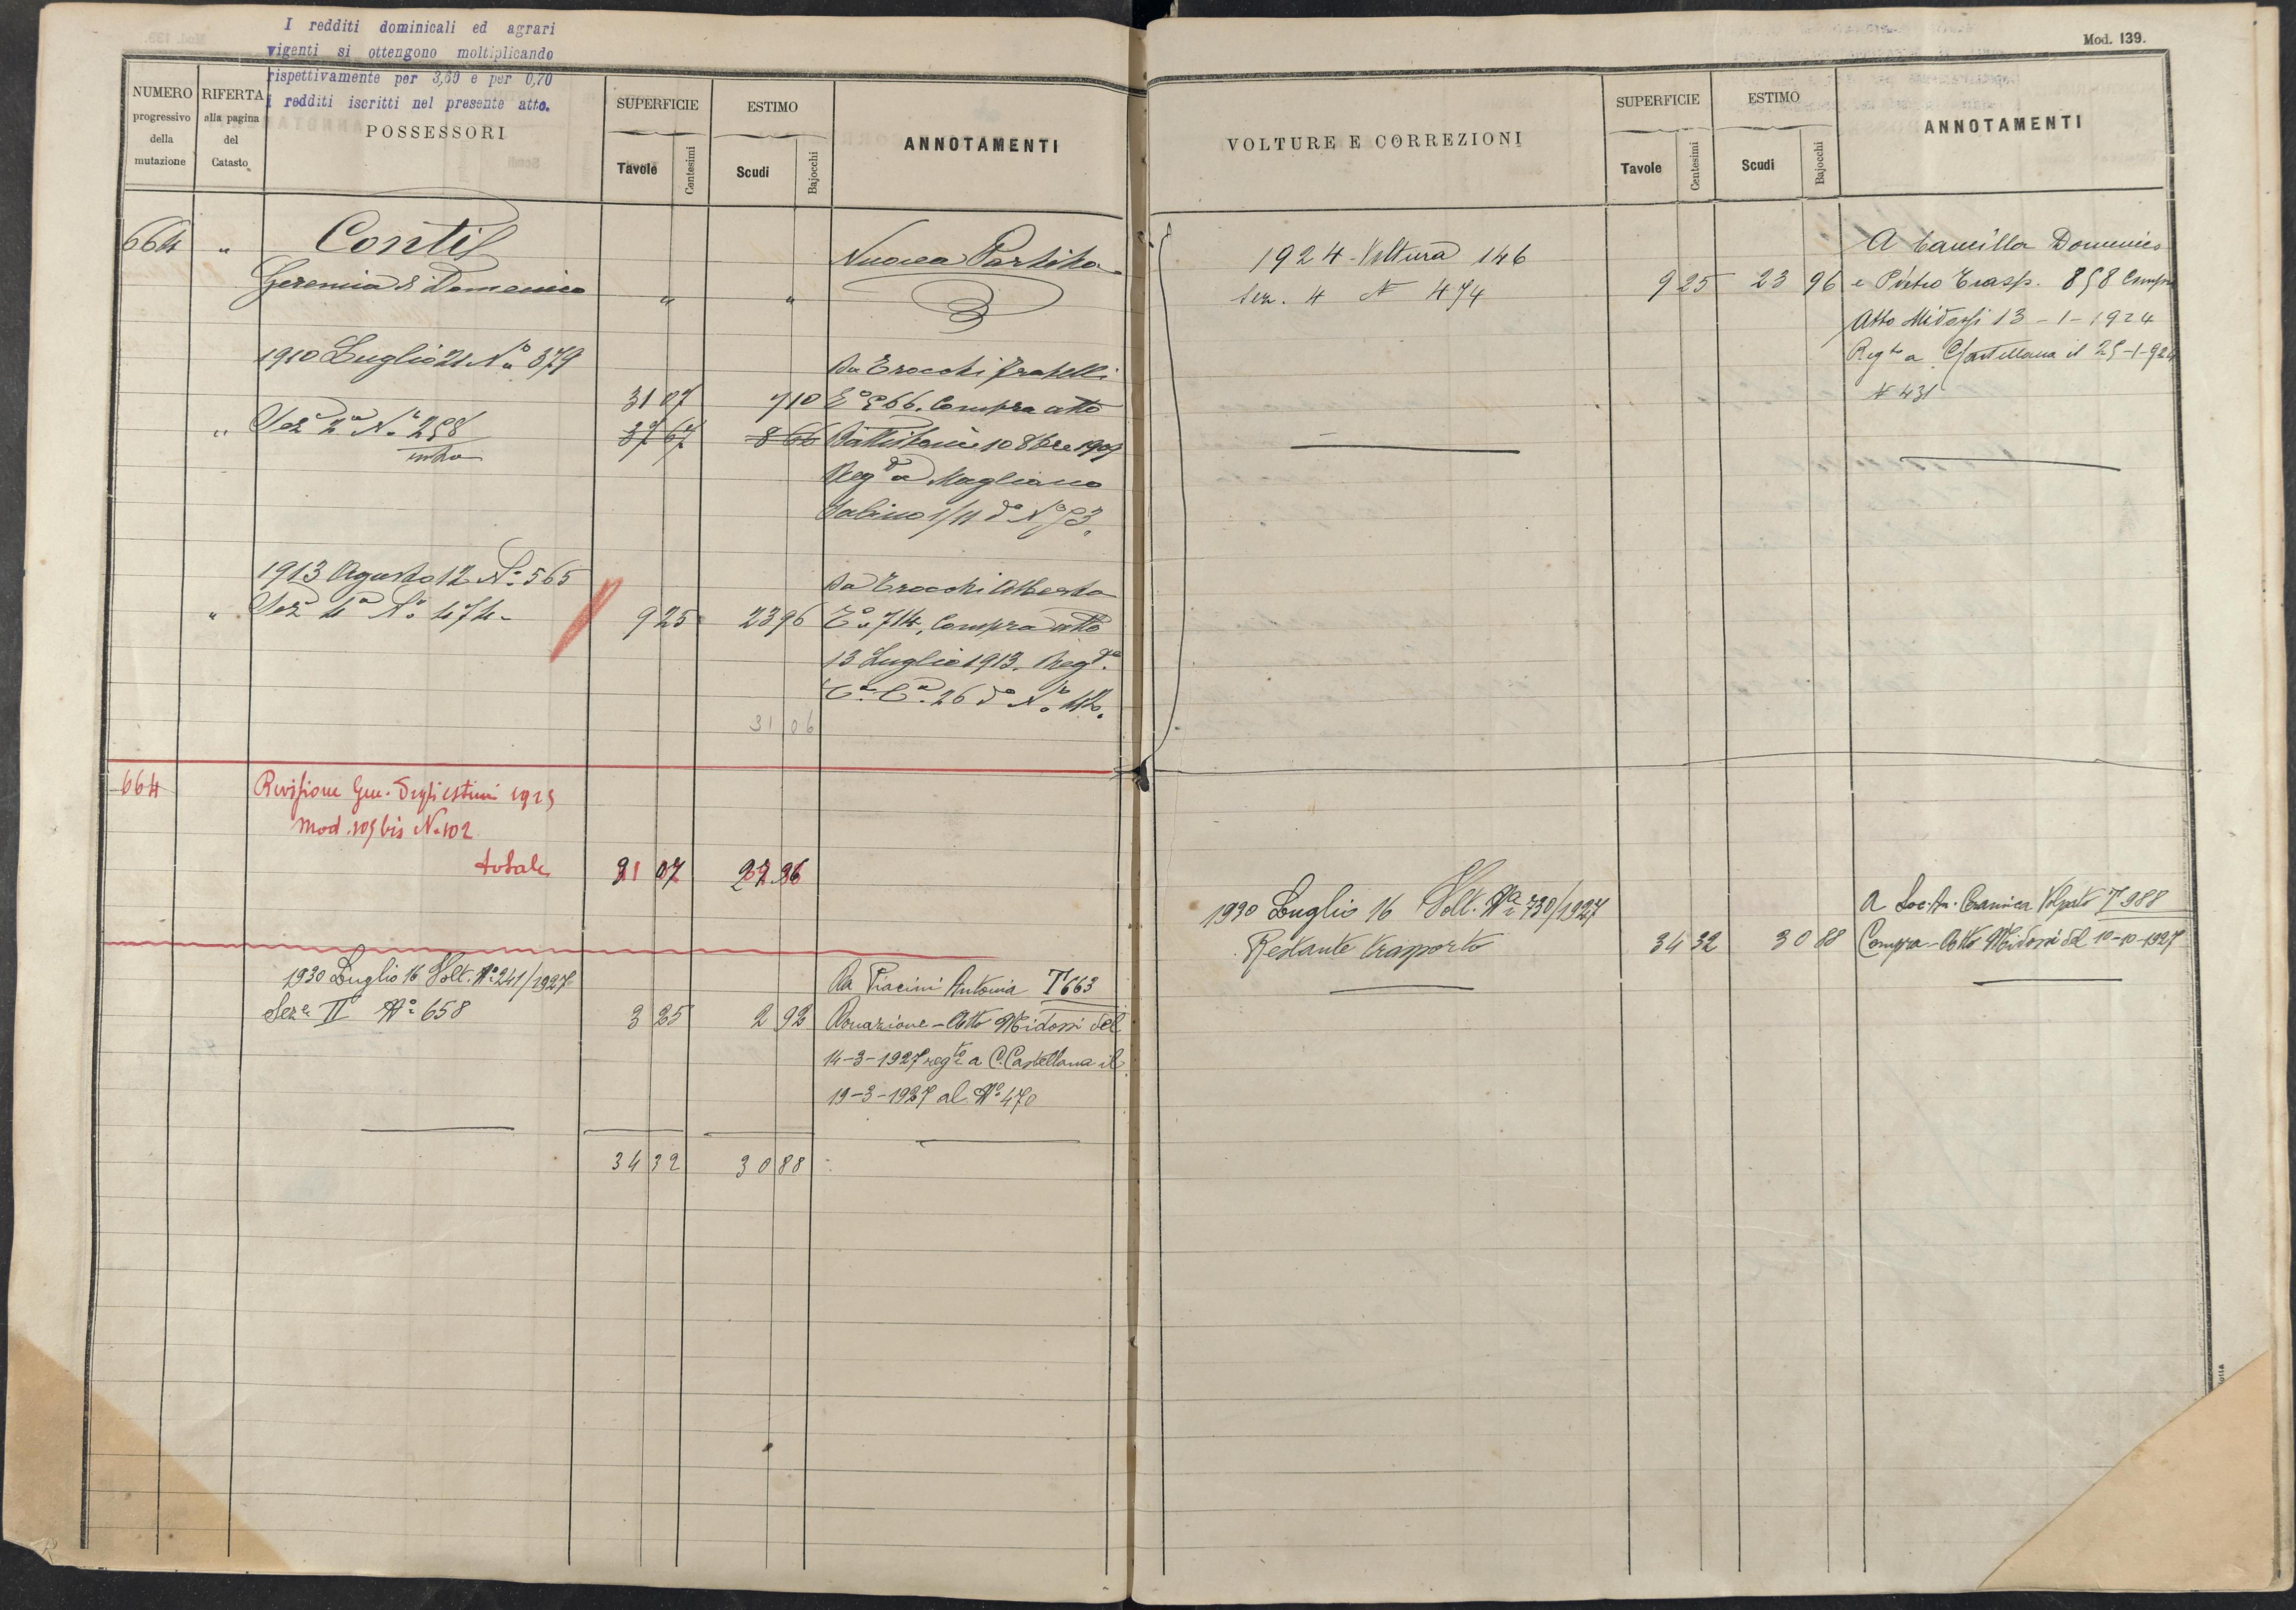 I redditi dominicali ed agrari
vigenti si ottengono moltiplicando
rispettivamente per 3,60 e per 0,70
i redditi iscritti nel presente atto.
NUMERO
progressivo
della
mutazione
RIFERTA
alla pagina
del
Catasto
POSSESSORI
SUPERFICIE
Tavole
Centesimi
ESTIMO
Scudi
Bajocchi
ANNOTAMENTI
664 " Conti
Geremia di Domenico " "
Nuova Partita
1910 Luglio 21 No 379
Da Trocchi Fratelli
31 07 7 10 To 566. Compra atto
" Sez 2a No 258
intra
37 67 8 66 Battistoni 10 8bre 1909
Rego a Magliano
Sabino 1/11 do No 73.
1913 Agosto 12 No 565
Da Trocchi Alberto
" Sez 4a No 474 9 25 23 96 To 714, Compra atto
13 Luglio 1913. Rego.
Ca. Ca. 26 do No 42.
31 06
664 Revisione Gen. degli estimi 1925
Mod. 105 bis No 102
totale 31 07 27 96
1930 Luglio 16 Volt. No 241/1927
Seze II No 658 3 25 2 92
Da Piacini Antonia T 663
Donazione - Atto Midossi del
14-3-1927 regto a C. Castellana il
19-3-1927 al No 470
34 32 30 88
Mod. 139.
VOLTURE E CORREZIONI
SUPERFICIE
Tavole
Centesimi
ESTIMO
Scudi
Bajocchi
ANNOTAMENTI
1924 - Voltura 146
Sez. 4 N 474 9 25 23 96
A Cancilla Domenico
e Pietro Trasp. 858 Compra
Atto Midossi 13-1-1924
Regto a C/Castellana il 25-1-924
N 431
1930 Luglio 16 Volt. No 730/1927
Restante trasporto 34 32 30 88
A Soc. An. Ceramica Volpato T 988
Compra - Atto Midossi del 10-10-1927